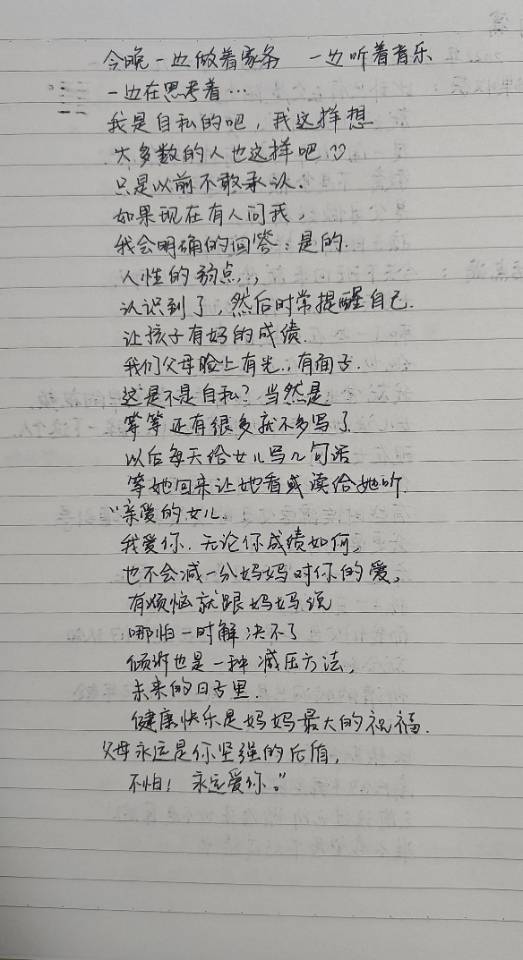 今晚一边做着家务 一边听着音乐
一边在思考着…
我是自私的吧，我这样想
大多数的人也这样吧
只是以前不敢承认.
如果现在有人问我，
我会明确的回答：是的.
人性的弱点..，
认识到了，然后时常提醒自己.
让孩子有好的成绩.
我们父母脸上有光.，有面子.
这是不是自私？当然是
等等还有很多就不多写了
以后每天给女儿写几句话
等她回来让她看或读给她听.
“亲爱的女儿.
我爱你.无论你成绩如何，
也不会减一分妈妈对你的爱，
有烦恼就跟妈妈说
哪怕一时解决不了
倾诉也是一种减压方法，
未来的日子里.
健康快乐是妈妈最大的祝福.
父母永远是你坚强的后盾，
不怕！永远爱你。”